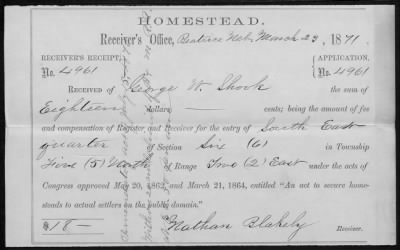 HOMESTEAD.
Receiver's Office, Beatrice Neb, March 23, 1871.
RECEIVER'S RECEIPT, No. 4961
APPLICATION, No. 4961
RECEIVED OF George W. Shook the sum of
Eighteen dollars — cents; being the amount of fee
and compensation of Register and Receiver for the entry of South East
quarter of Section Six (6) in Township
Five (5) North of Range Two (2) East under the acts of
Congress approved May 20, 1862, and March 21, 1864, entitled "An act to secure home-
steads to actual settlers on the public domain."
$18— Nathan Blakely Receiver.